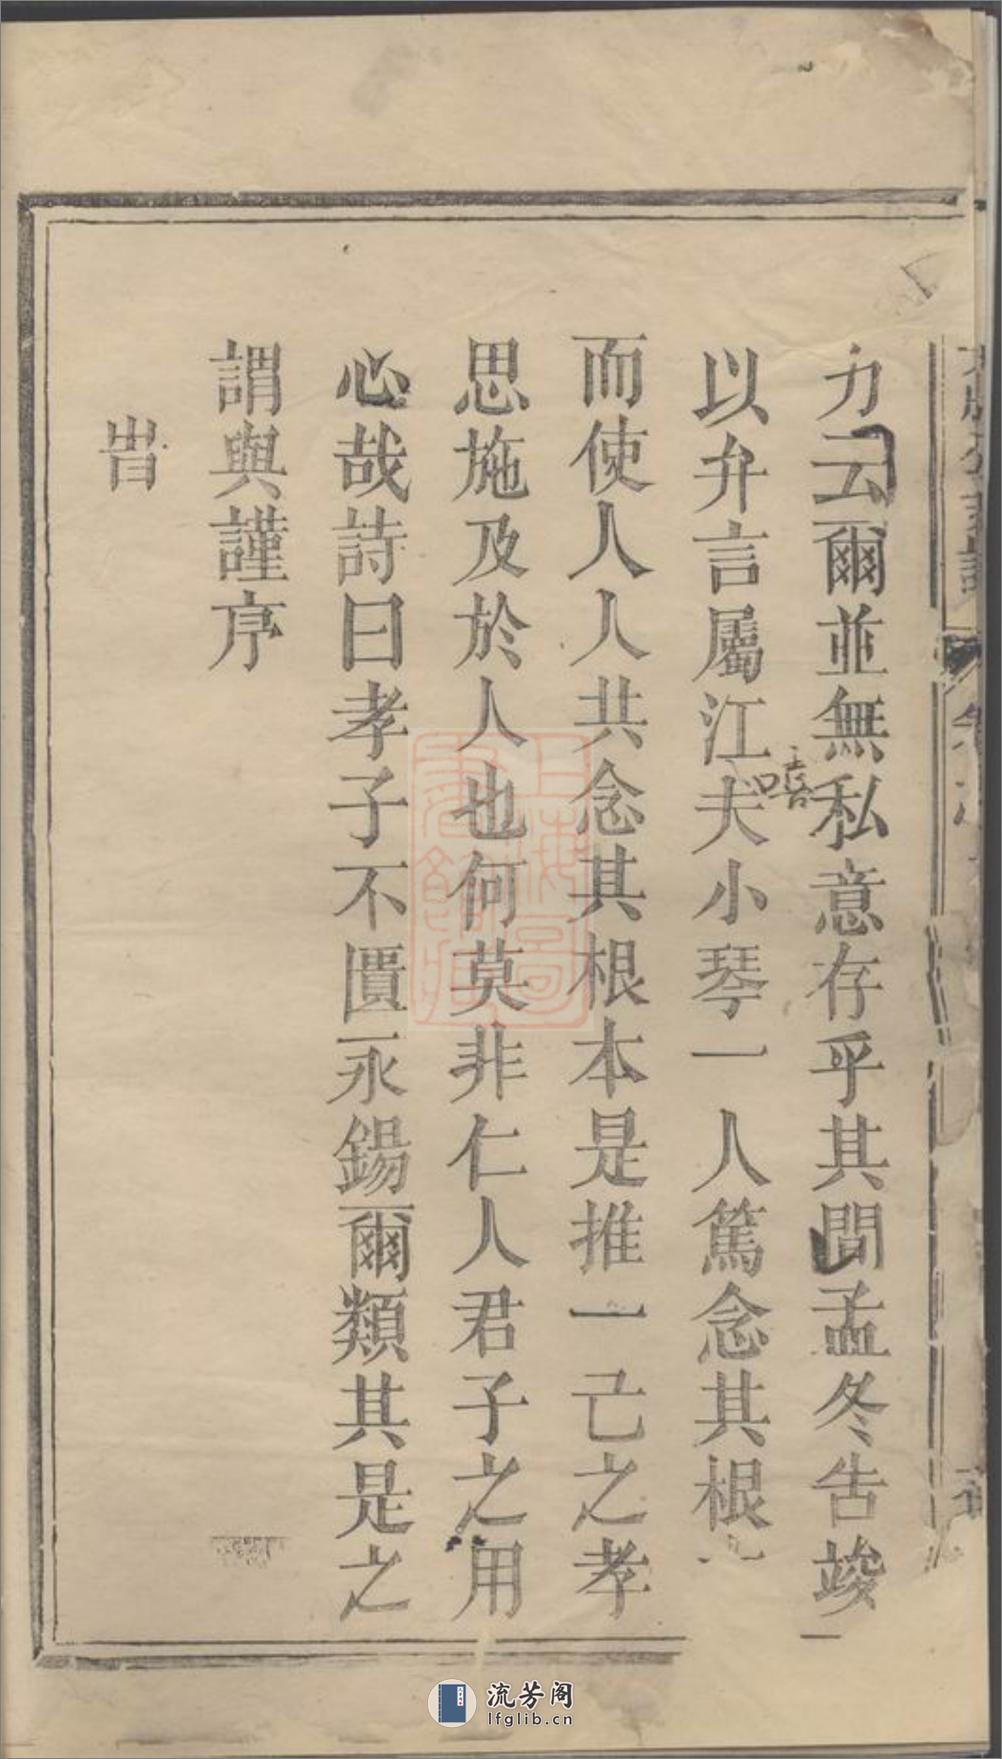 力云爾並無私意存乎其間孟冬告竣
以弁言屬江夫小琴一人篤念其根
嘻
而使人人共念其根本是推一己之孝
思施及於人也何莫非仁人君子之用
心哉詩曰孝子不匱永錫爾類其是之
謂與謹序
旹
上海圖書館藏
流芳阁
lfglib.cn